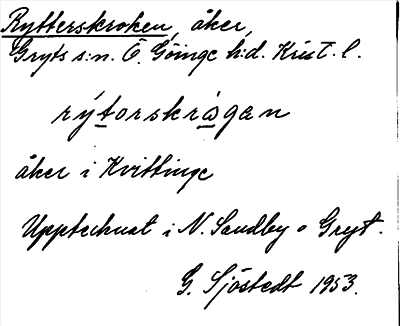 Rytterskroken, åker,
Gryts s:n. Ö. Göinge h:d. Krist. l.
rýtorskrågan
åker i Kvittinge
Upptecknat i N. Sandby o Gryt.
G. Sjöstedt 1953.